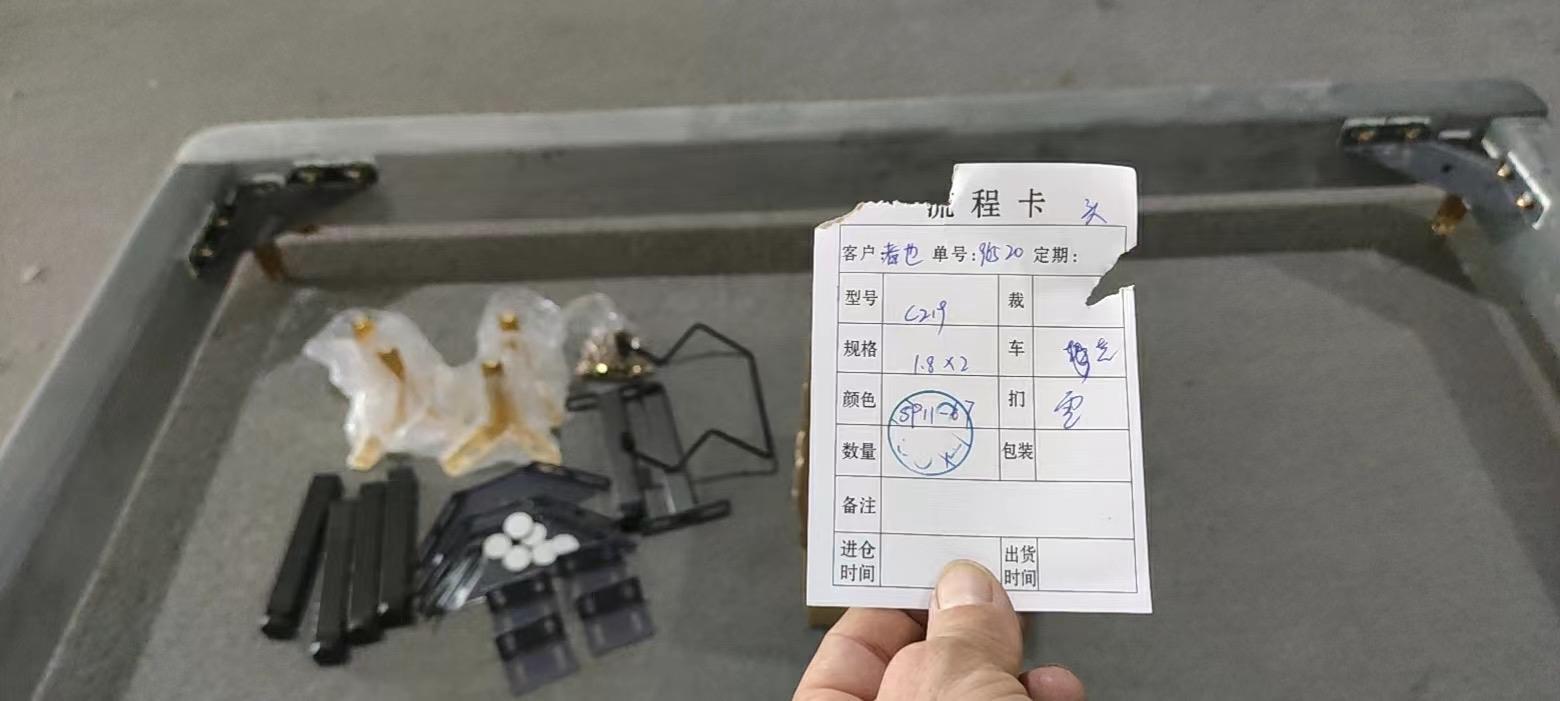 流程卡 头
客户 春也 单号: 9520 定期:
型号 C219 裁
规格 1.8×2 车
颜色 SP11-67 扪
数量 包装
备注
进仓时间 出货时间